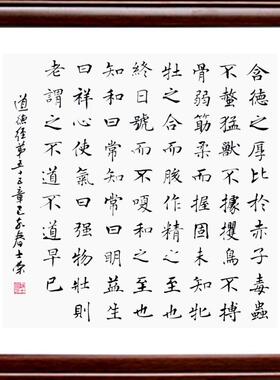 含德之厚比於赤子毒蟲
不螫猛獸不據攫鳥不搏
骨弱筋柔而握固未知牝
牡之合而朘作精之至也
終日號而不嗄和之至也
知和曰常知常曰明益生
曰祥心使氣曰強物壯則
老謂之不道不道早已
道德經第五十五章己亥春士榮